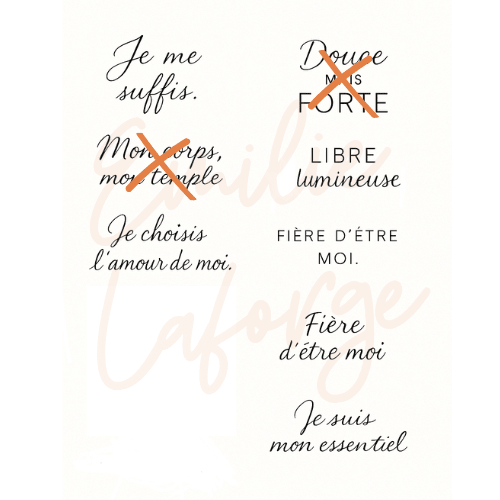 Je me
suffis.
Mon corps,
mon temple
Je choisis
l'amour de moi.
Douce
MAIS
FORTE
LIBRE
lumineuse
FIÈRE D'ÉTRE
MOI.
Fière
d'étre moi
Je suis
mon essentiel
Emilie
Laforge